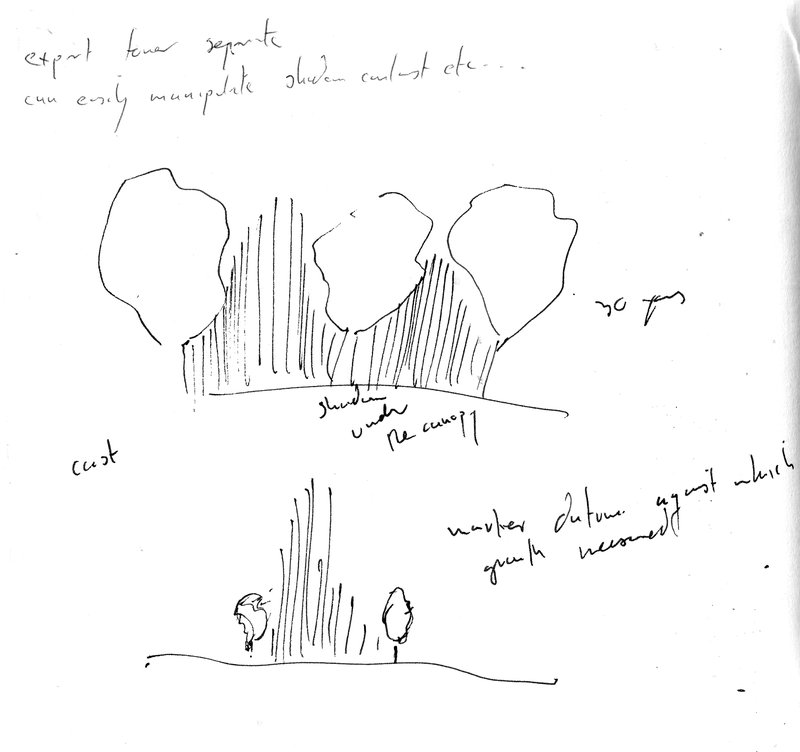 export tower separate
can easily manipulate shadow contrast etc....
30 years
shadow
under
the canopy
cast
marker datum against which
growth measured